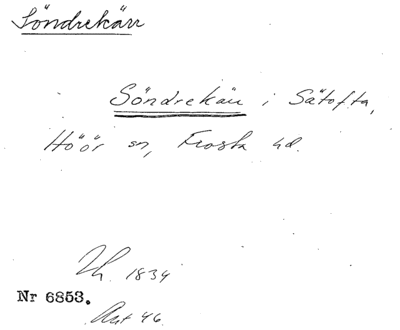 Söndrekärr
Söndrekärr i Sätofta,
Höör sn, Frosta hd.
Lh. 1834
Nr 6853.
Avt 46